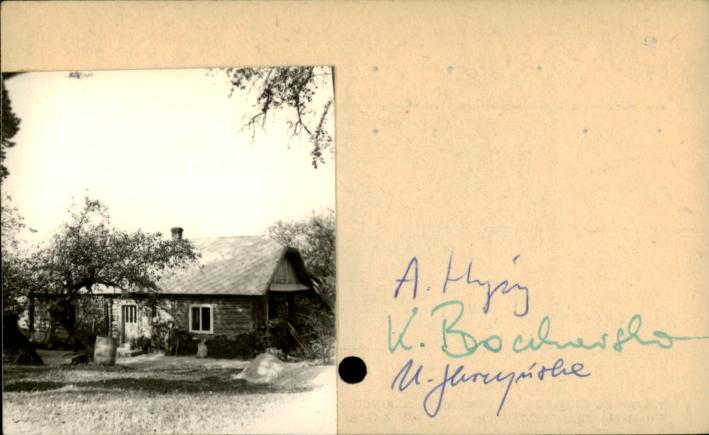 A. Hyży
K. Bocharska
U. Jarczyńska